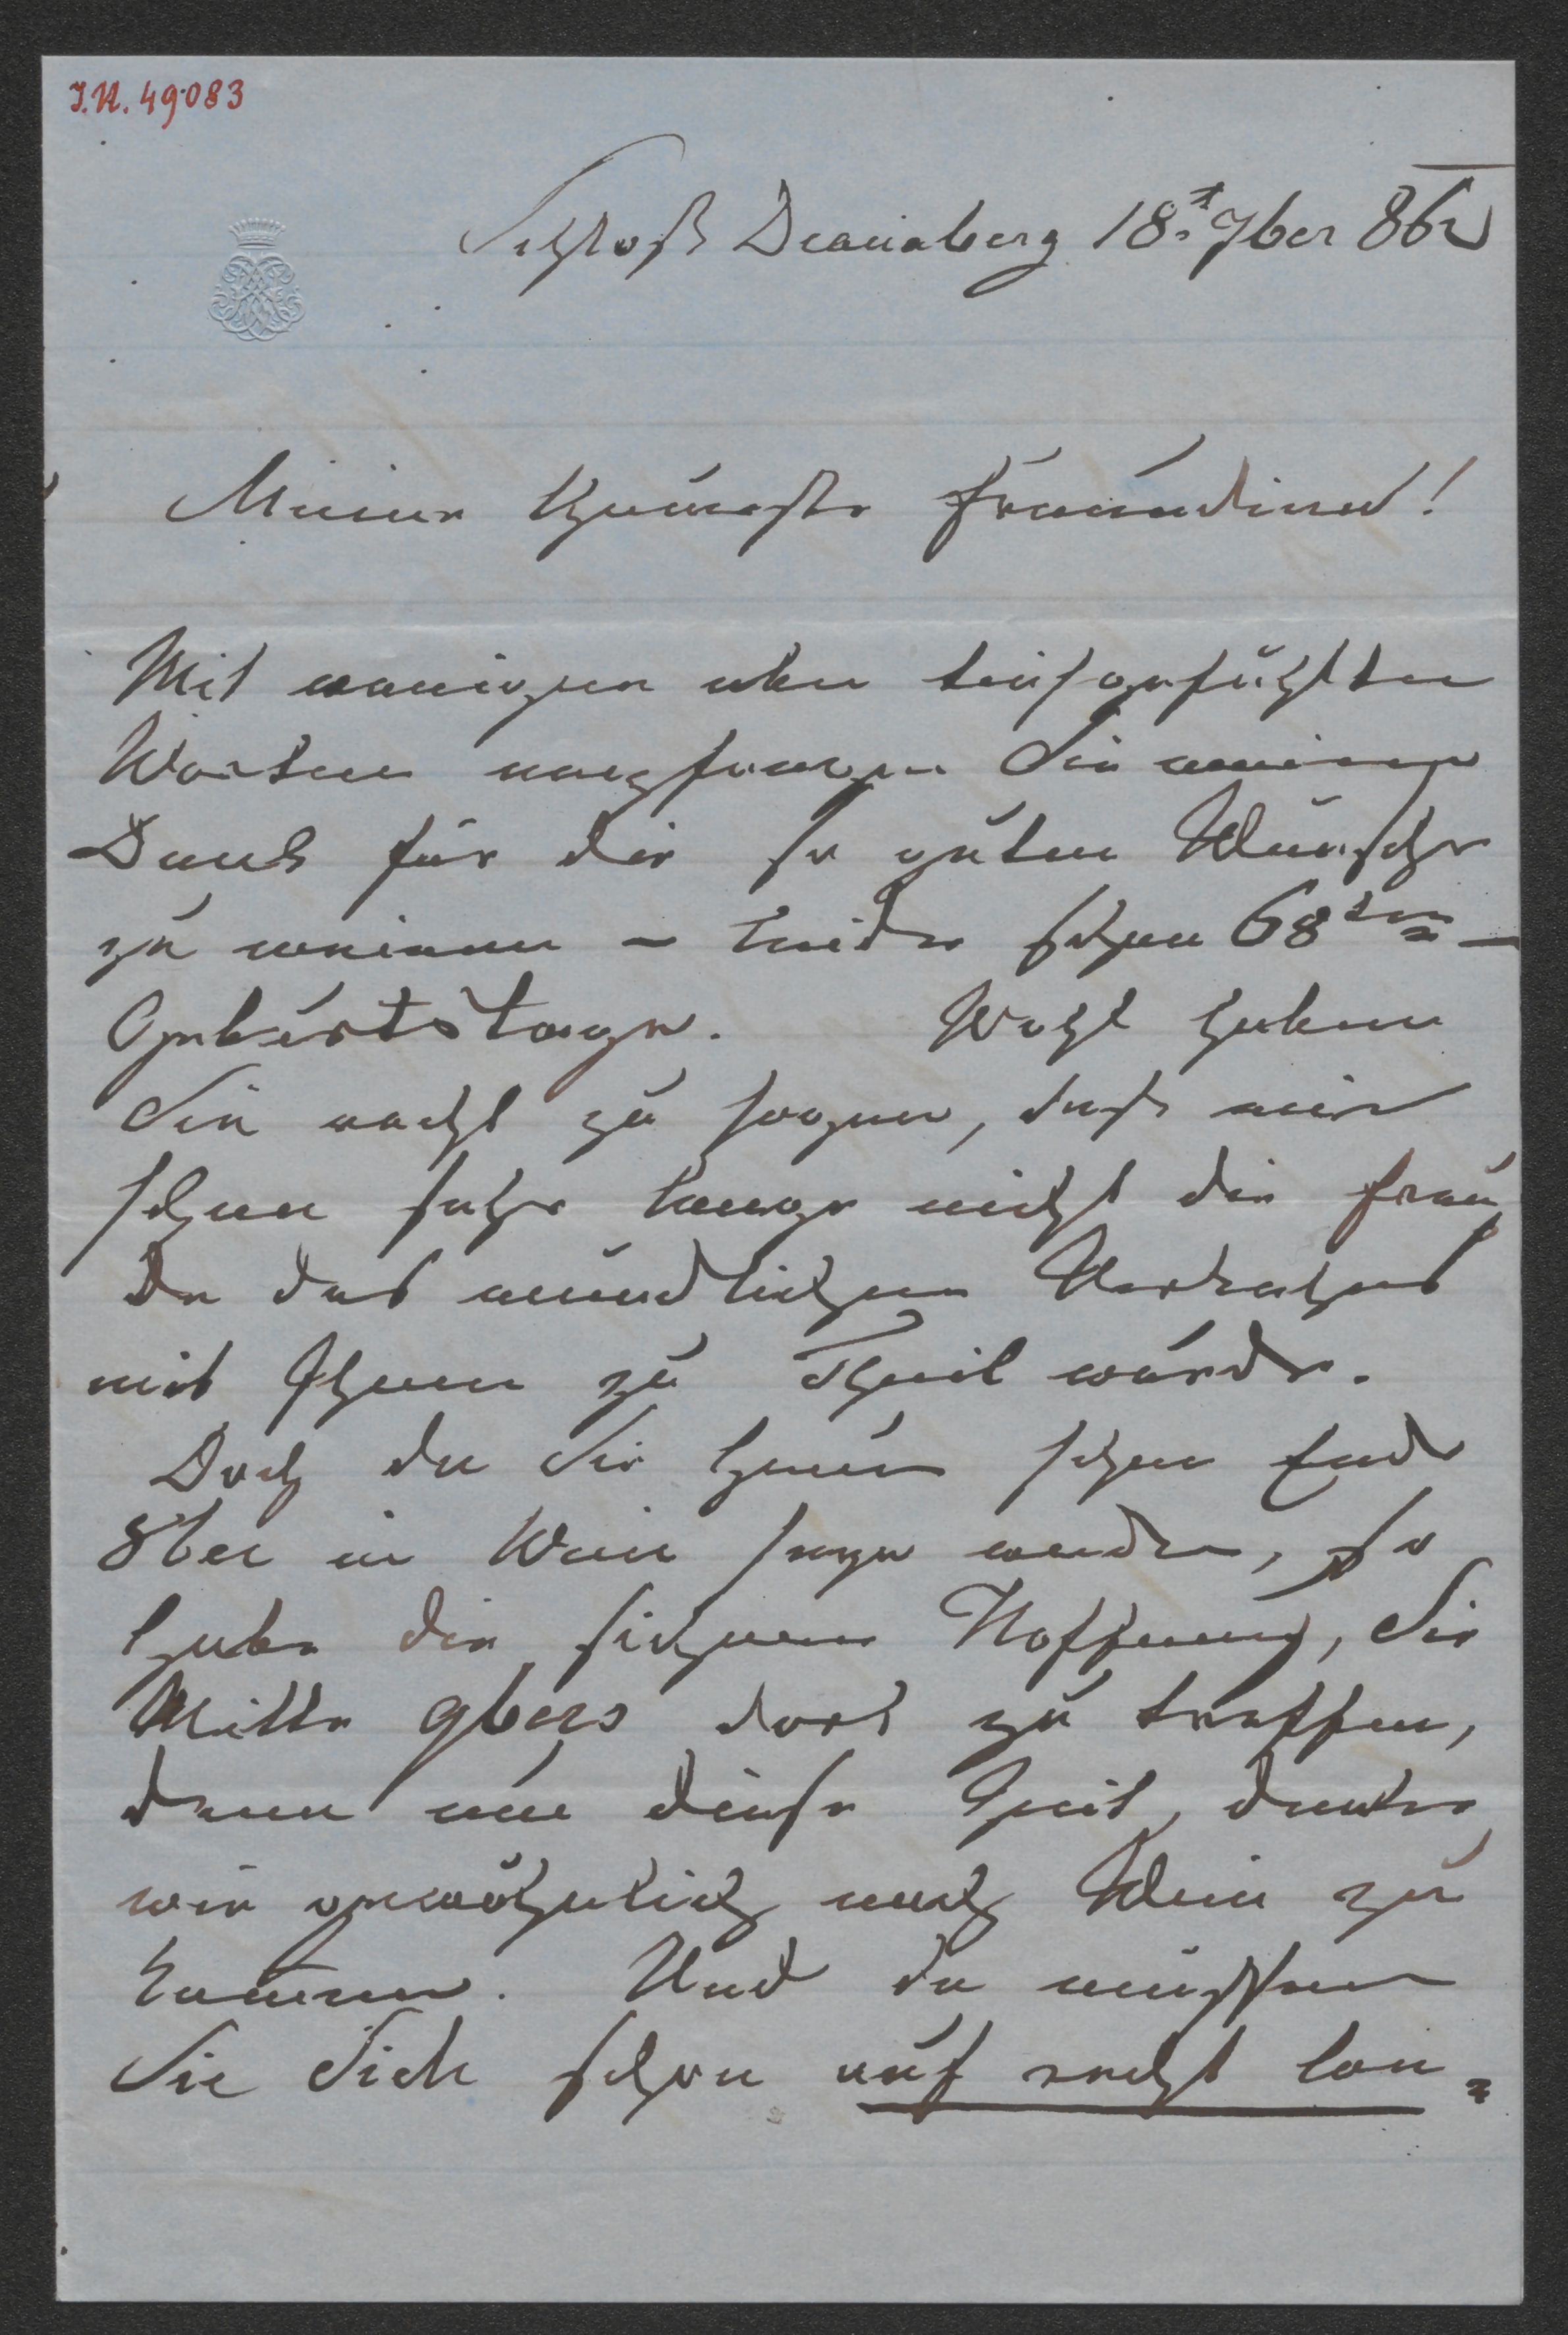 I.N. 49083
Schloß Dianaberg 18t. 7ber 862
Meine theuerste Freundinn!
Mit wenigen aber tiefgefühlten
Worten empfangen Sie meinen
Dank für die so guten Wünsche
zu meinem – leider schon 68ten –
Geburtstage. Wohl haben
Sie recht zu sagen, daß mir
schon sehr lange nicht die Freu
de des mündlichen Verkehres
mit Ihnen zu Theil wurde.
Doch da Sie heuer schon Ende
8ber in Wien seyn werden, so
habe die sichere Hoffnung, Sie
Mitte 9bers dort zu treffen,
denn um diese Zeit denken
wir gewöhnlich nach Wien zu
kommen. Und da müssen
Sie Sich schon auf recht lan=